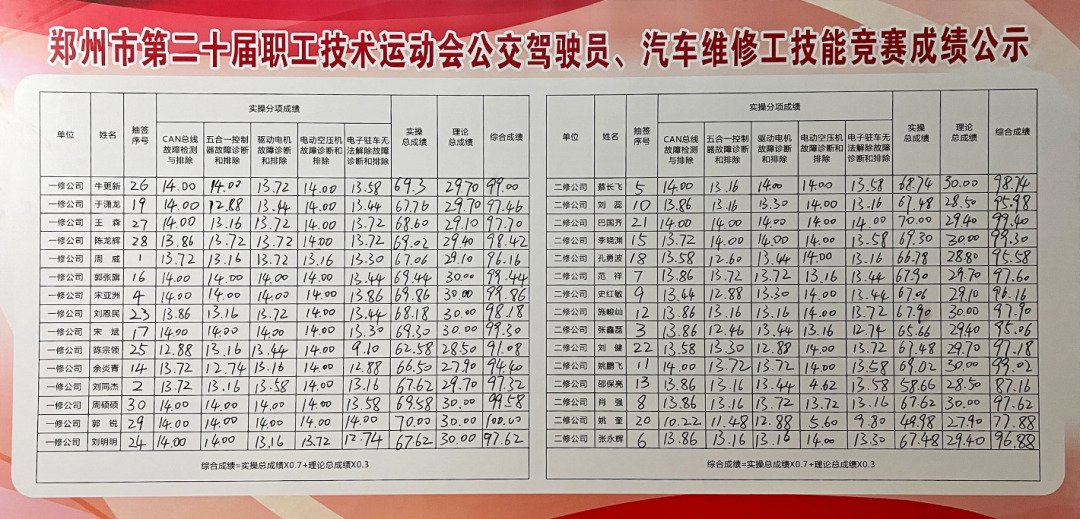 郑州市第二十届职工技术运动会公交驾驶员、汽车维修工技能竞赛成绩公示
单位 姓名 抽签序号 实操分项成绩 实操总成绩 理论总成绩 综合成绩
CAN总线故障检测与排除 五合一控制器故障诊断和排除 驱动电机故障诊断和排除 电动空压机故障诊断和排除 电子驻车无法解除故障诊断和排除
一修公司 牛更新 26 14.00 14.00 13.72 14.00 13.58 69.3 29.70 99.00
一修公司 于潇龙 19 14.00 12.88 13.44 14.00 13.44 67.76 29.70 97.46
一修公司 王森 27 14.00 13.16 13.72 14.00 13.72 68.60 29.10 97.70
一修公司 陈龙辉 28 13.86 13.72 13.72 14.00 13.72 69.02 29.40 98.42
一修公司 周威 1 13.72 13.16 13.72 13.16 13.30 67.06 29.10 96.16
一修公司 郭张旗 16 14.00 14.00 14.00 14.00 13.44 69.44 30.00 99.44
一修公司 宋亚洲 4 14.00 14.00 14.00 14.00 13.86 69.86 30.00 99.86
一修公司 刘恩民 23 13.86 13.16 13.72 14.00 13.44 68.18 30.00 98.18
一修公司 宋斌 17 14.00 14.00 14.00 14.00 13.30 69.30 30.00 99.30
一修公司 陈宗领 25 12.88 13.16 13.44 14.00 9.10 62.58 28.50 91.08
一修公司 余炎青 14 13.72 12.74 13.16 14.00 12.88 66.50 27.90 94.40
一修公司 刘同杰 2 13.72 13.16 13.58 14.00 13.16 67.62 29.70 97.32
一修公司 周硕硕 30 14.00 14.00 14.00 14.00 13.58 69.58 30.00 99.58
一修公司 郭锐 29 14.00 14.00 14.00 14.00 14.00 70.00 30.00 100.00
一修公司 刘明明 24 14.00 14.00 13.16 13.72 12.74 67.62 30.00 97.62
综合成绩=实操总成绩X0.7+理论总成绩X0.3
单位 姓名 抽签序号 实操分项成绩 实操总成绩 理论总成绩 综合成绩
CAN总线故障检测与排除 五合一控制器故障诊断和排除 驱动电机故障诊断和排除 电动空压机故障诊断和排除 电子驻车无法解除故障诊断和排除
二修公司 蔡长飞 5 14.00 13.16 14.00 14.00 13.58 68.74 30.00 98.74
二修公司 刘蕊 10 13.86 13.16 13.30 14.00 13.16 67.48 28.50 95.98
二修公司 巴国齐 21 14.00 14.00 14.00 14.00 14.00 70.00 29.40 99.40
二修公司 李晓渊 15 13.72 14.00 14.00 14.00 13.58 69.30 30.00 99.30
二修公司 孔勇波 18 13.58 12.60 13.44 14.00 13.16 66.78 28.80 95.58
二修公司 范祥 7 13.86 13.72 13.72 13.16 13.44 67.90 29.70 97.60
二修公司 史红敏 9 13.44 12.88 13.30 14.00 13.44 67.06 29.10 96.16
二修公司 施峻屾 12 13.86 13.16 13.16 14.00 13.72 67.90 30.00 97.90
二修公司 张鑫磊 3 13.86 12.46 13.44 13.16 12.74 65.66 29.40 95.06
二修公司 刘健 22 13.58 13.30 12.88 14.00 13.72 67.48 29.70 97.18
二修公司 姚鹏飞 11 14.00 13.72 13.72 14.00 13.58 69.02 30.00 99.02
二修公司 邵保亮 13 13.86 13.16 13.44 4.62 13.58 58.66 28.50 87.16
二修公司 肖强 8 13.86 13.16 13.72 13.72 13.16 67.62 30.00 97.62
二修公司 姚奎 20 10.22 11.48 12.88 5.60 9.80 49.98 27.90 77.88
二修公司 张永辉 6 13.86 13.16 13.16 14.00 13.30 67.48 29.40 96.88
综合成绩=实操总成绩X0.7+理论总成绩X0.3